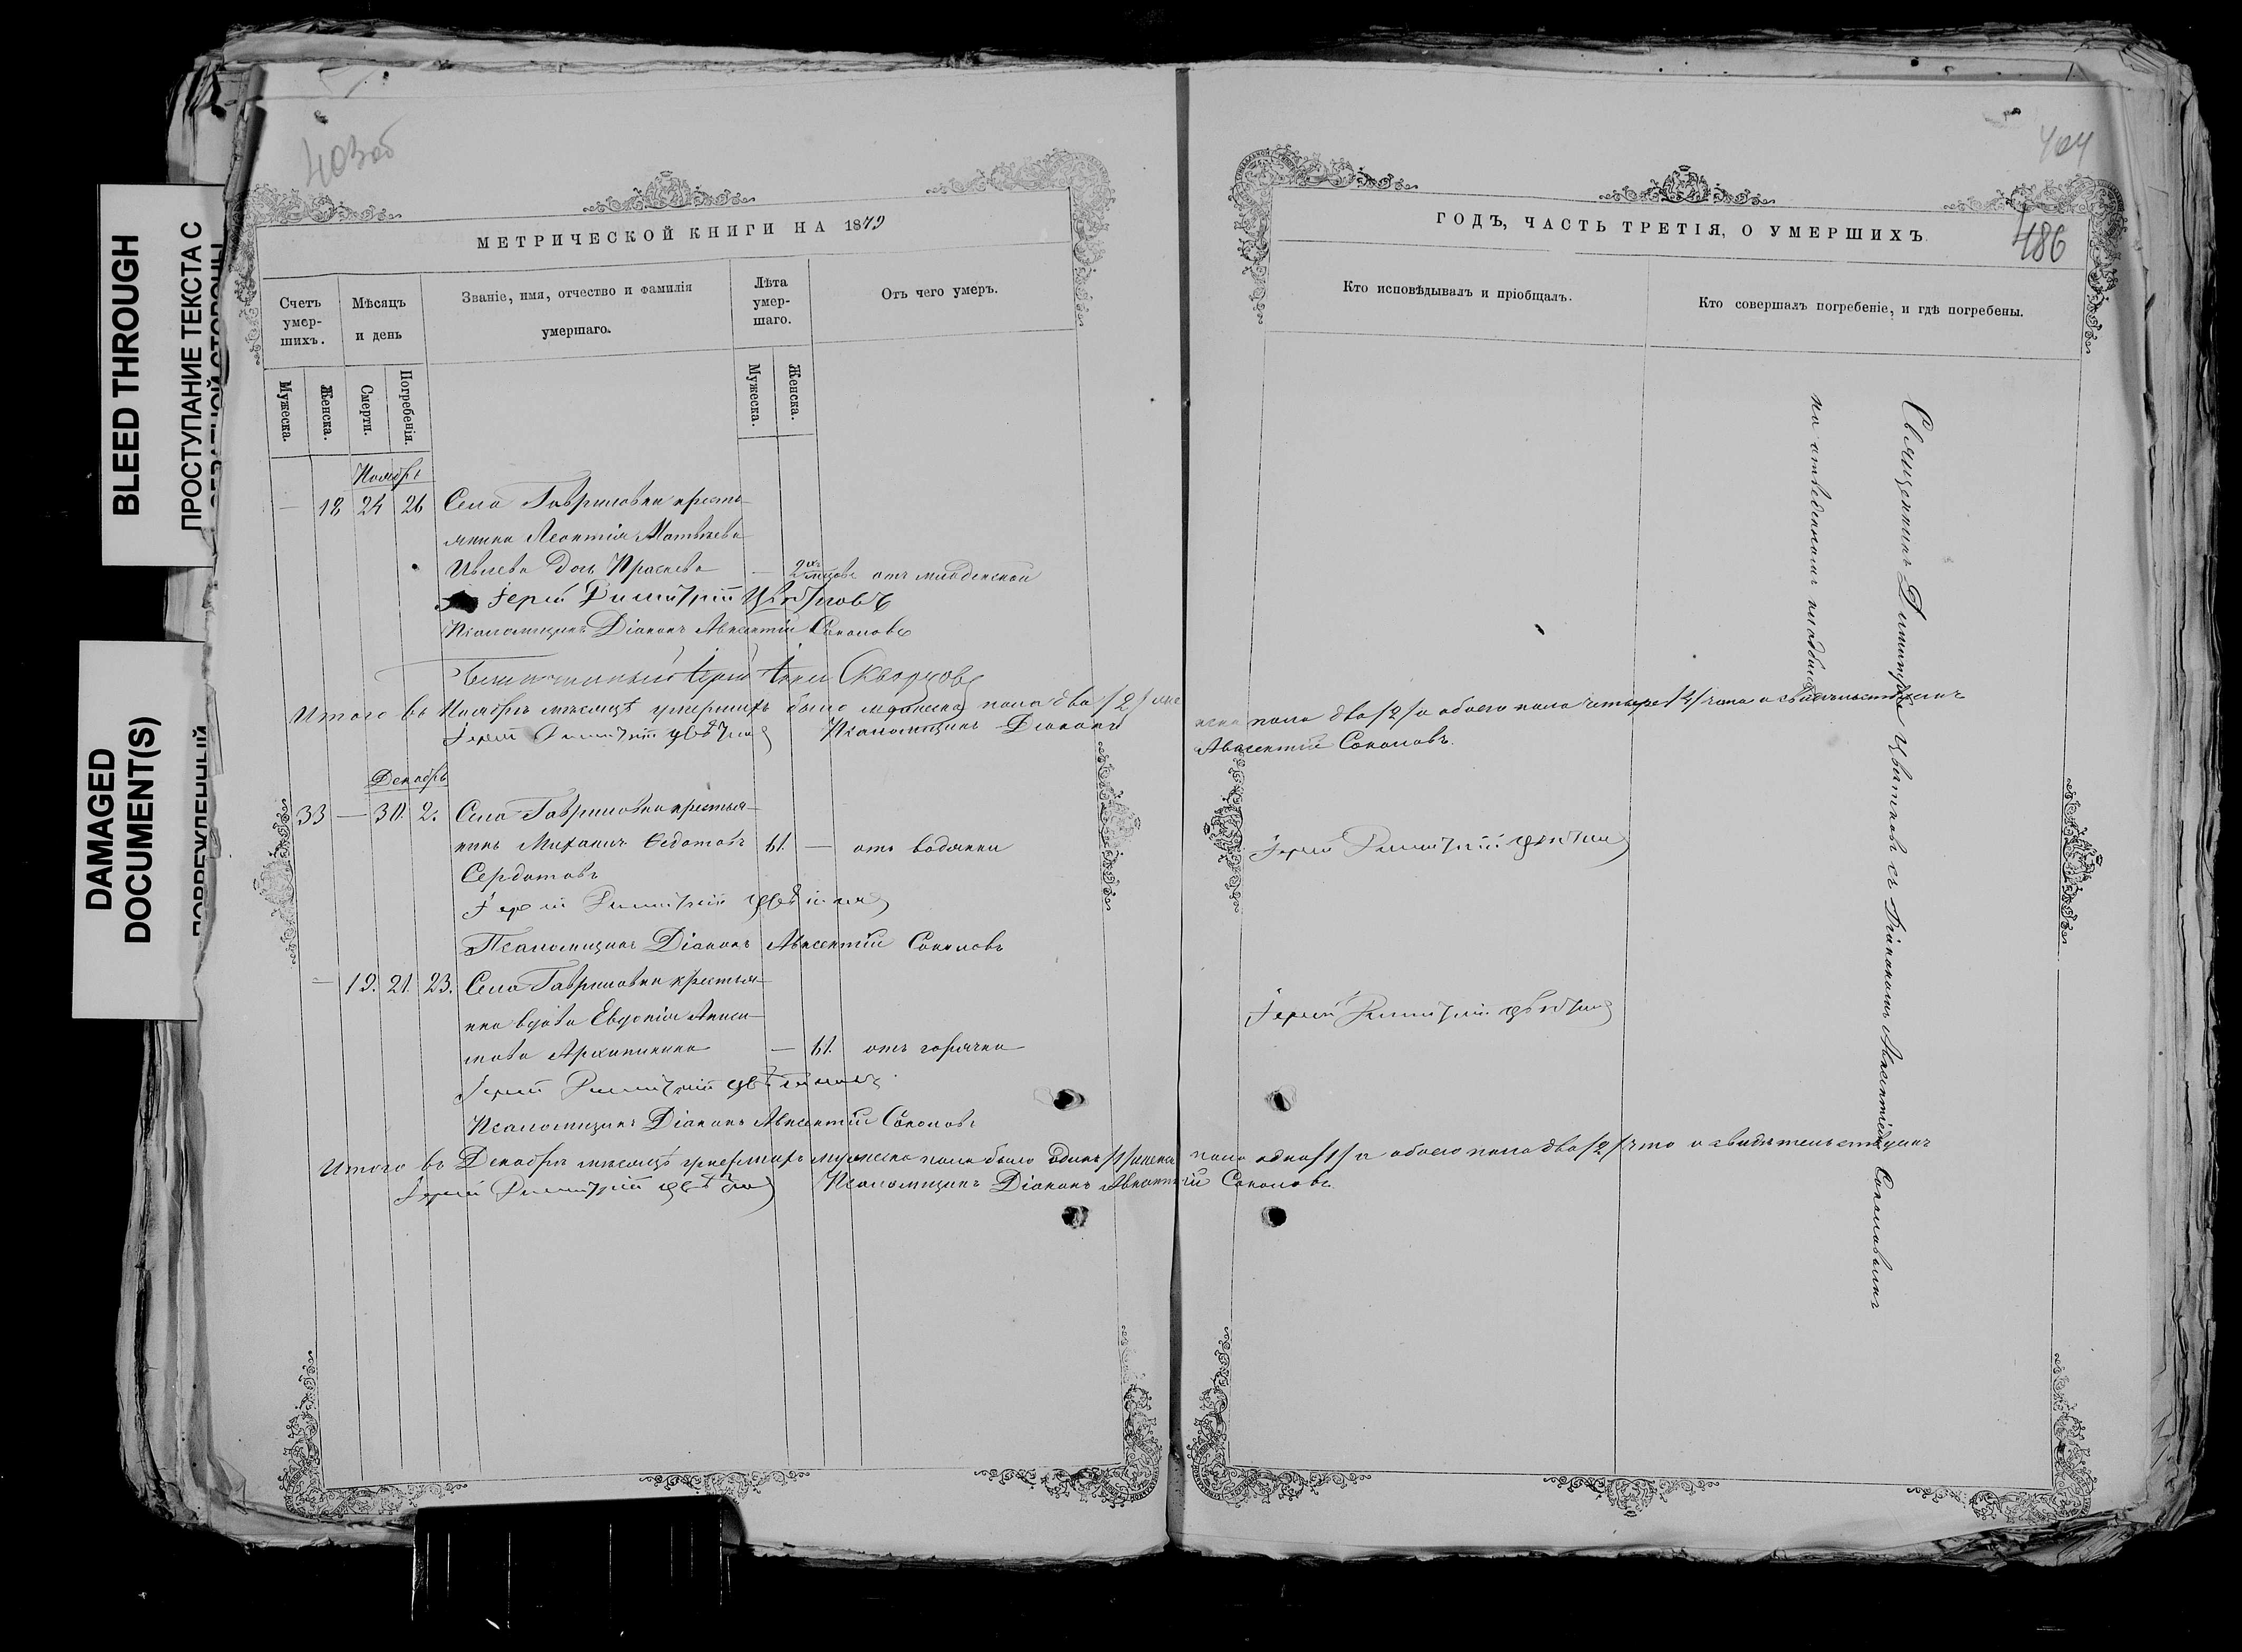 BLEED THROUGH
ПРОСТУПАНИЕ ТЕКСТА С
DAMAGED
DOCUMENT(S)
ПОВРЕЖДЕННЫЙ
403об
МЕТРИЧЕСКОЙ КНИГИ НА 1879
Счетъ умер-шихъ.
Мѣсяцъ и день
Званіе, имя, отчество и фамилія умершаго.
Лѣта умер-шаго.
Отъ чего умеръ.
Мужеска.
Женска.
Смерти.
Погребенія.
Мужеска.
Женска.
Ноябрь
— 18 24 26 Села Гавриловки кресть-
янина Леонтія Матвѣева
Ивлева дочь — 2 отъ младенской
Іерей Димитрій Цвѣтковъ
Псаломщикъ Діаконъ Авксентій Соколовъ
Благочинный Іерей Скворцовъ
Итого въ Ноябрѣ мѣсяцѣ умершихъ было мужеска пола два /2/ жен
Іерей Димитрій Цвѣтковъ Псаломщикъ Діаконъ
Декабрь
33 — 30. 2. Села Гавриловки крестья-
нинъ Михаилъ Ѳедотовъ 61. — отъ водянки
Сердитовъ
Іерей Димитрій Цвѣтковъ
Псаломщикъ Діаконъ Авксентій Соколовъ
— 19. 21. 23. Села Гавриловки крестья-
нка вдова Евдокія Аниси-
мова — 61. отъ горячки
Іерей Димитрій Цвѣтковъ
Псаломщикъ Діаконъ Авксентій Соколовъ
Итого въ Декабрѣ мѣсяцѣ умершихъ мужеска пола было одинъ /1/ женска
Іерей Димитрій Цвѣтковъ Псаломщикъ Діаконъ Авксентій Соколовъ
404
486
ГОДЪ, ЧАСТЬ ТРЕТІЯ, О УМЕРШИХЪ
Кто исповѣдывалъ и пріобщалъ.
Кто совершалъ погребеніе, и гдѣ погребены.
Священникъ Димитрій Цвѣтковъ съ Діакономъ Авксентіемъ Соколовымъ
на отведенномъ кладбищѣ
пола два /2/ а обоего пола четыре /4/ свидѣтельствуемъ
Авксентій Соколовъ.
Іерей Димитрій Цвѣтковъ
Іерей Димитрій Цвѣтковъ
пола одна /1/ а обоего пола два /2/ что и свидѣтельствуемъ